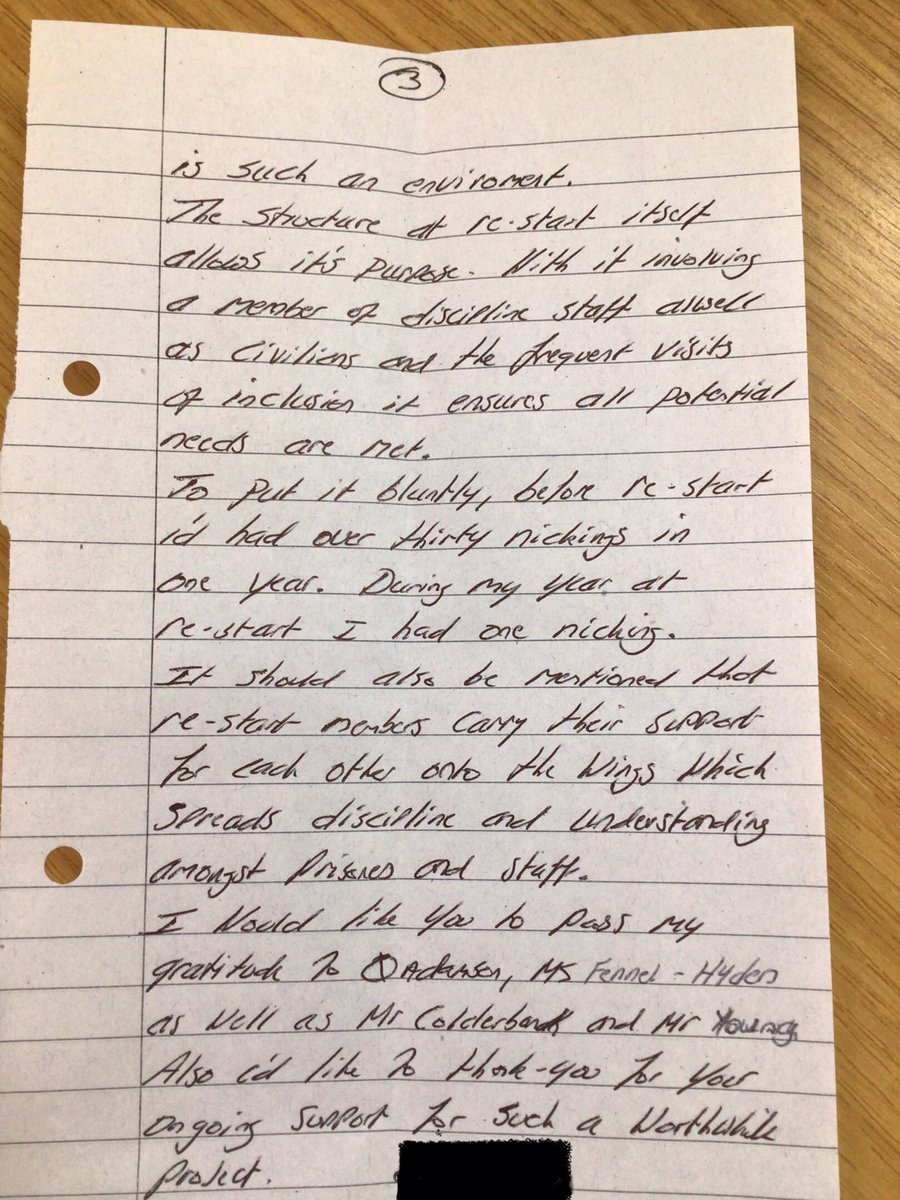 3
is such an enviroment.
The structure at re-start itself
allows it's purpose. With it involving
a member of discipline staff aswell
as civilians and the frequent visits
of inclusion it ensures all potential
needs are met.
To put it bluntly, before re-start
i'd had over thirty nickings in
one year. During my year at
re-start I had one nicking.
It should also be mentioned that
re-start members carry their support
for each other onto the wings which
spreads discipline and understanding
amongst prisoners and staff.
I would like you to pass my
gratitude to Adamson, Ms Fennel-Hyden
as well as Mr Colderbank and Mr Young
Also i'd like to thank-you for your
ongoing support for such a worthwhile
project.